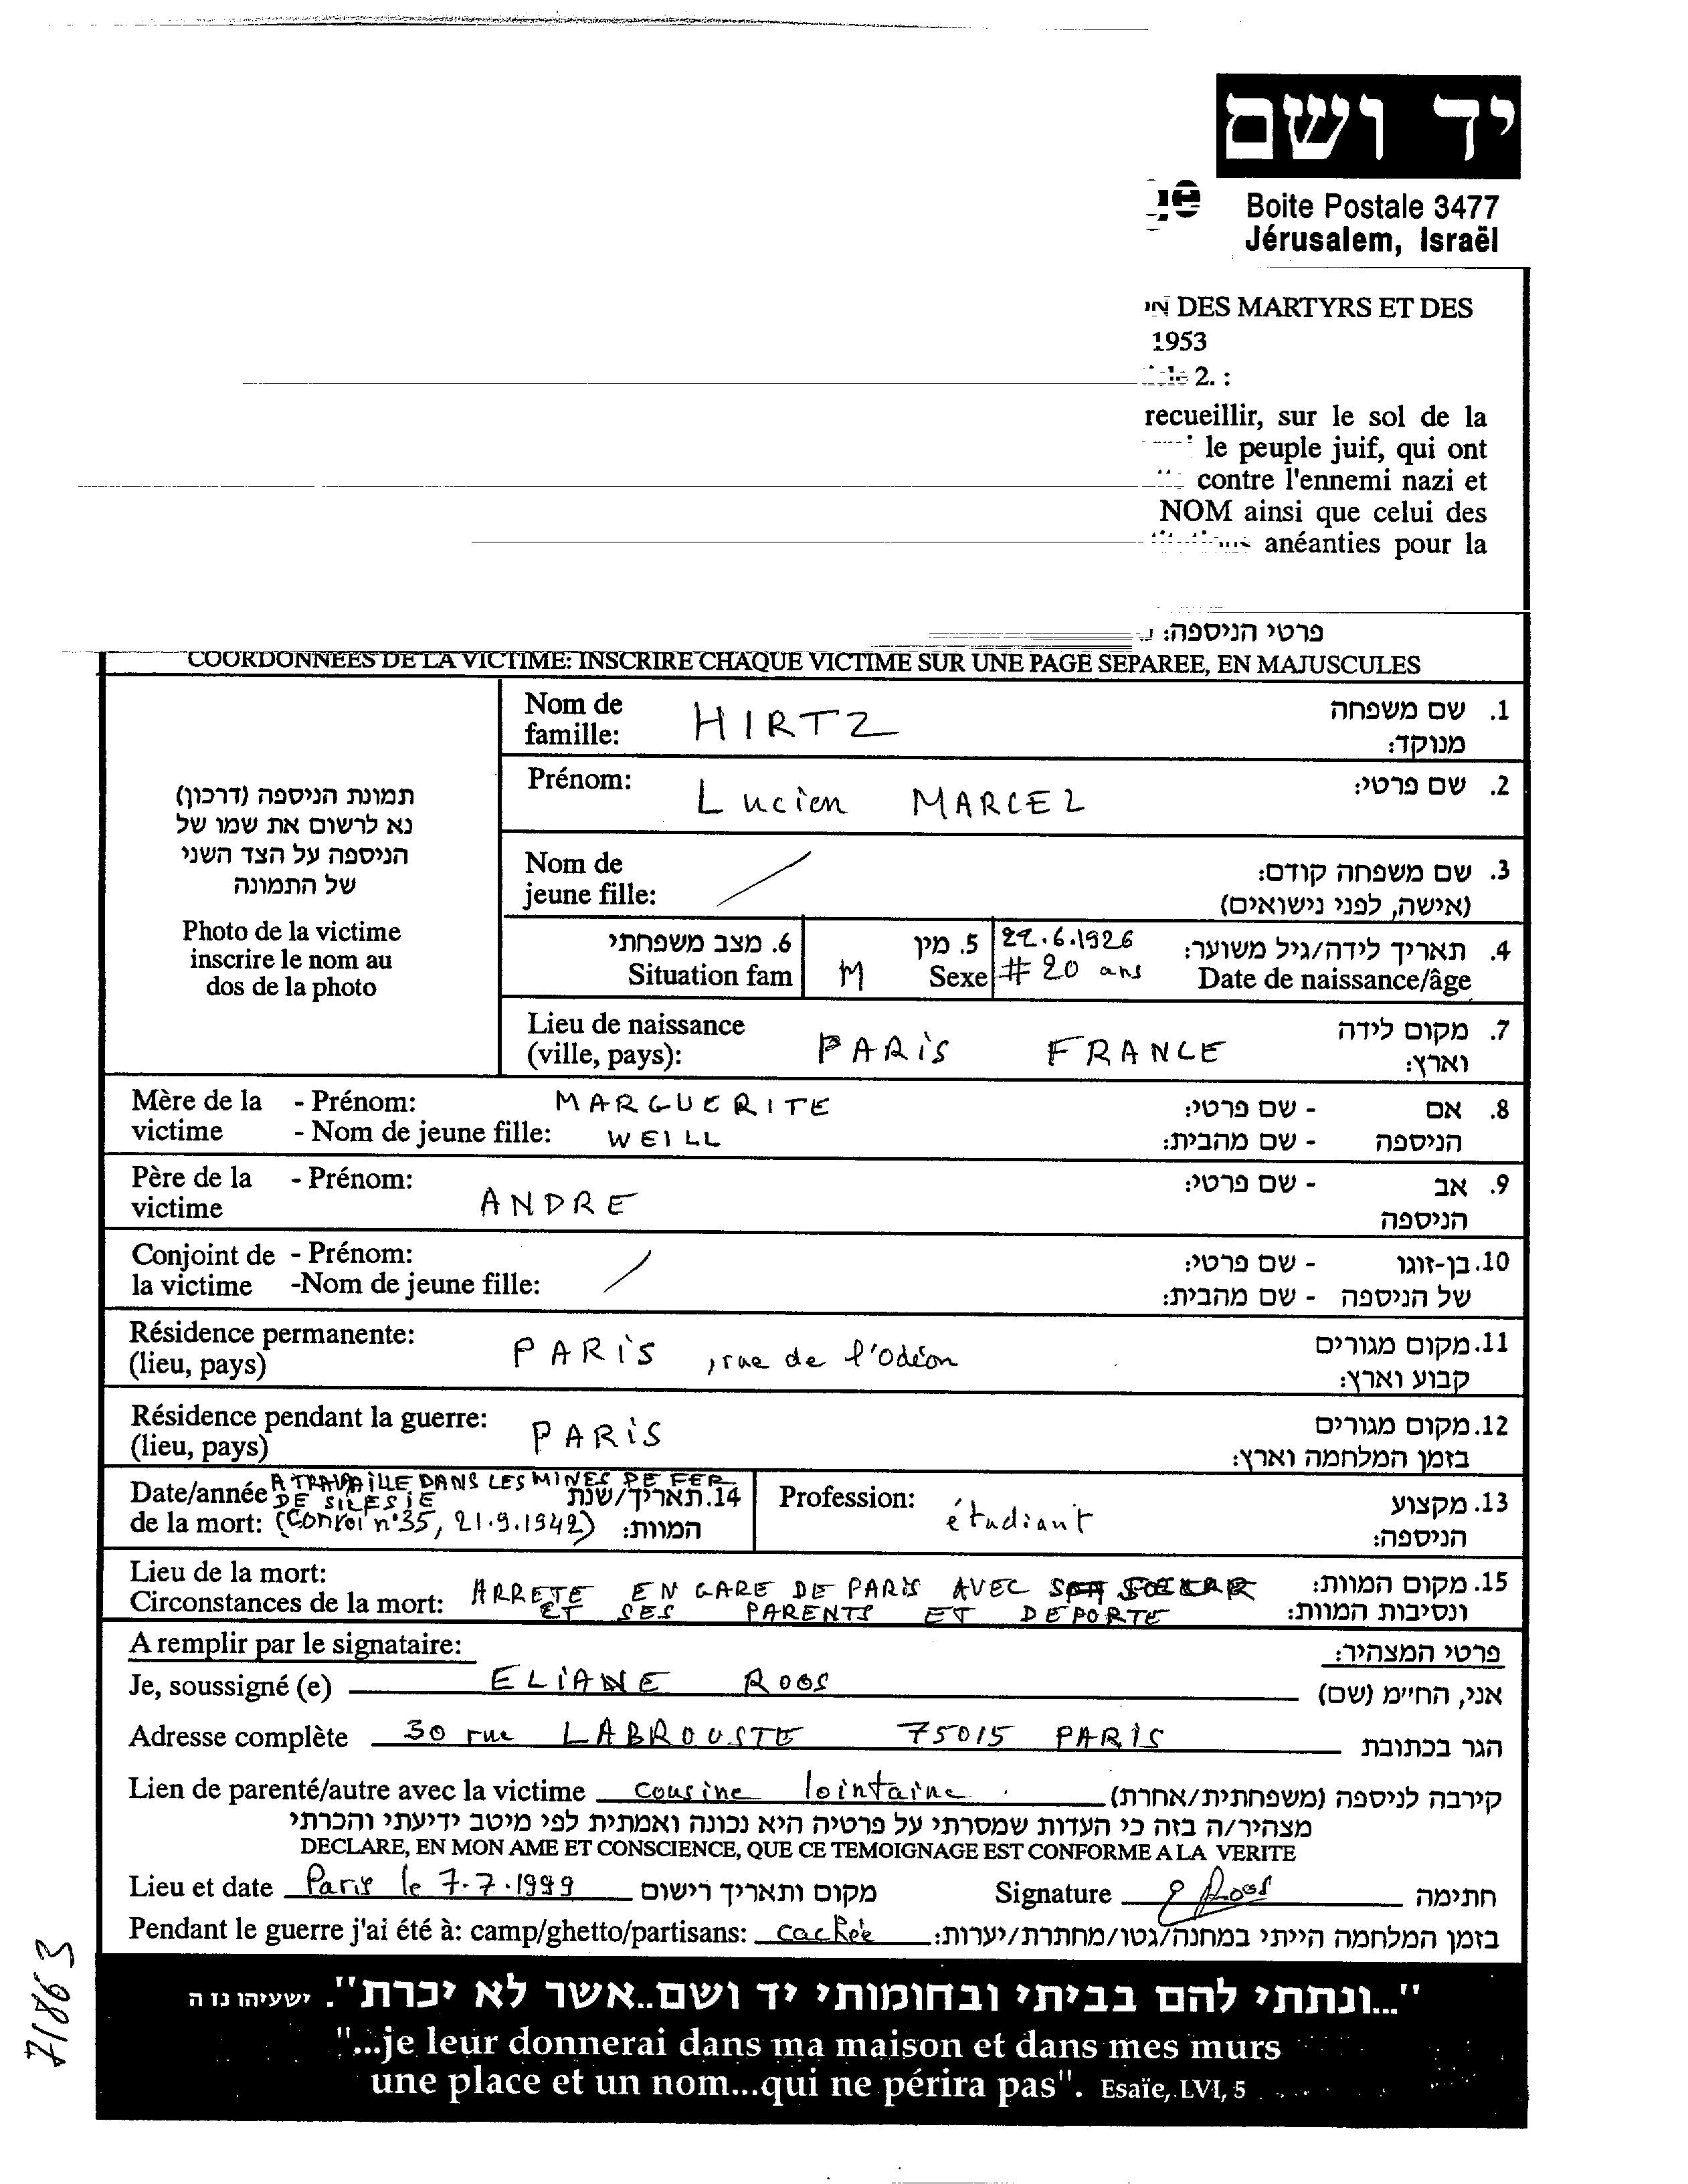 יד ושם
Boite Postale 3477
Jérusalem, Israël
DES MARTYRS ET DES
1953
2. :
recueillir, sur le sol de la
le peuple juif, qui ont
contre l'ennemi nazi et
NOM ainsi que celui des
anéanties pour la
פרטי הניספה:
COORDONNEES DE LA VICTIME: INSCRIRE CHAQUE VICTIME SUR UNE PAGE SEPAREE, EN MAJUSCULES
תמונת הניספה (דרכון)
נא לרשום את שמו של
הניספה על הצד השני
של התמונה
Photo de la victime
inscrire le nom au
dos de la photo
Nom de famille: HIRTZ 1. שם משפחה
מנוקד:
Prénom: Lucien MARCEL 2. שם פרטי:
Nom de jeune fille: / 3. שם משפחה קודם:
(אישה, לפני נישואים)
6. מצב משפחתי 5. מין 22.6.1926 4. תאריך לידה/גיל משוער:
Situation fam M Sexe # 20 ans Date de naissance/âge
Lieu de naissance 7. מקום לידה
(ville, pays): PARIS FRANCE וארץ:
Mère de la - Prénom: MARGUERITE - שם פרטי: 8. אם
victime - Nom de jeune fille: WEILL - שם מהבית: הניספה
Père de la - Prénom: ANDRE - שם פרטי: 9. אב
victime הניספה
Conjoint de - Prénom: / - שם פרטי: 10. בן-זוגו
la victime -Nom de jeune fille: - שם מהבית: של הניספה
Résidence permanente: PARIS, rue de l'Odéon 11. מקום מגורים
(lieu, pays) קבוע וארץ:
Résidence pendant la guerre: PARIS 12. מקום מגורים
(lieu, pays) בזמן המלחמה וארץ:
A TRAVAILLE DANS LES MINES DE FER
Date/année DE SILESIE 14. תאריך/שנת Profession: étudiant 13. מקצוע
de la mort: (Convoi n°35, 21.9.1942) המוות: הניספה:
Lieu de la mort: 15. מקום המוות:
Circonstances de la mort: ARRETE EN GARE DE PARIS AVEC ונסיבות המוות:
ET SES PARENTS ET DEPORTE
A remplir par le signataire: פרטי המצהיר:
Je, soussigné (e) ELIANE ROOS אני, החי"מ (שם)
Adresse complète 30 rue LABROUSTE 75015 PARIS הגר בכתובת
Lien de parenté/autre avec la victime cousine lointaine. קירבה לניספה (משפחתית/אחרת)
מצהיר/ה בזה כי העדות שמסרתי על פרטיה היא נכונה ואמתית לפי מיטב ידיעתי והכרתי
DECLARE, EN MON AME ET CONSCIENCE, QUE CE TEMOIGNAGE EST CONFORME A LA VERITE
Lieu et date Paris le 7.7.1999 מקום ותאריך רישום Signature E Roos חתימה
Pendant le guerre j'ai été à: camp/ghetto/partisans: cachée בזמן המלחמה הייתי במחנה/גטו/מחתרת/יערות:
"...ונתתי להם בביתי ובחומותי יד ושם..אשר לא יכרת". ישעיהו נז ה
"...je leur donnerai dans ma maison et dans mes murs
une place et un nom...qui ne périra pas". Esaïe, LVI, 5
71863